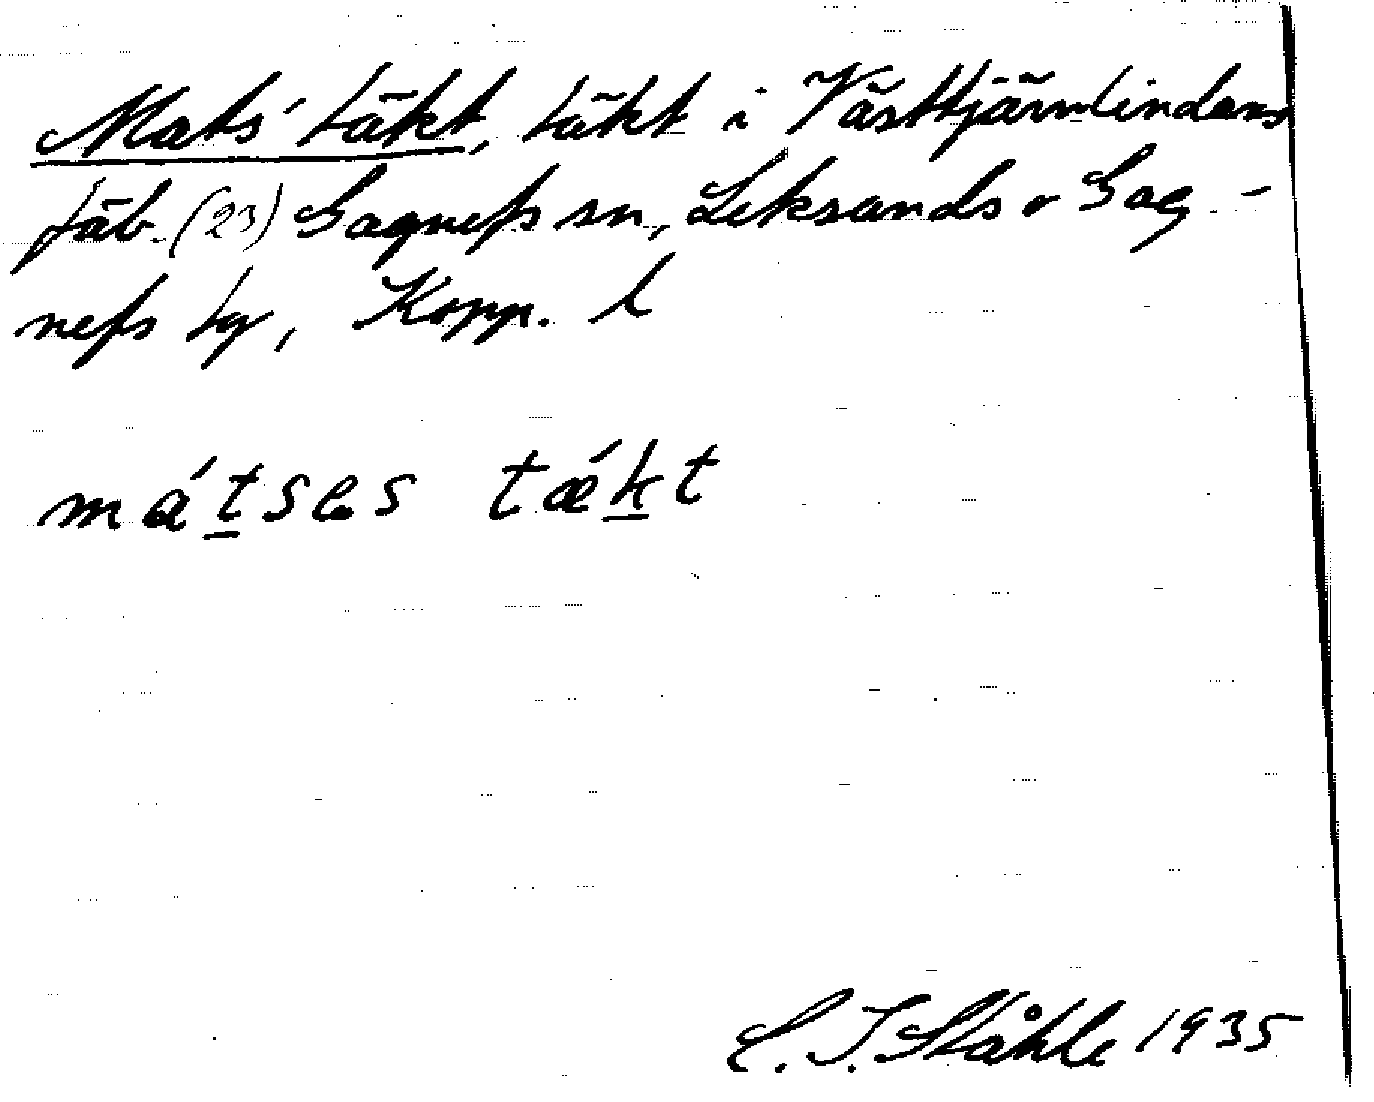 Mats' täkt, täkt i Västtjärnlindans
fäb. (23) Gagnefs sn, Leksands o Gag-
nefs tg, Kopp. l
mátses tǽkt
C. I. Ståhle 1935